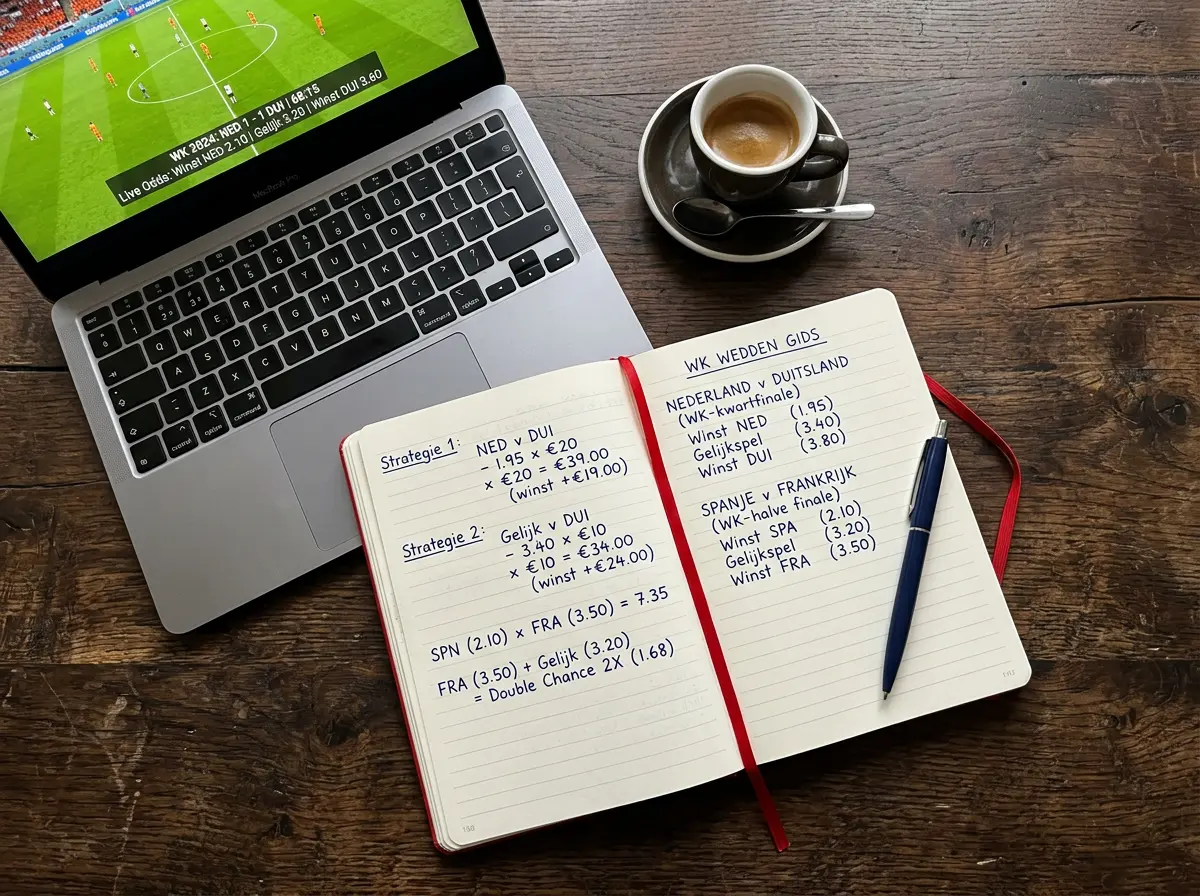 WK 2024: NED 1 - 1 DUI | 68:15
Live Odds: Winst NED 2.10 | Gelijk 3.20 | Winst DUI 3.60
MacBook Pro
Strategie 1: NED v DUI
- 1.95 × €20
× €20 = €39.00
(winst +€19.00)
Strategie 2: Gelijk v DUI
- 3.40 × €10
× €10 = €34.00
(winst +€24.00)
SPN (2.10) × FRA (3.50) = 7.35
FRA (3.50) + Gelijk (3.20)
= Double Chance 2X (1.68)
WK WEDDEN GIDS
NEDERLAND v DUITSLAND
(WK-kwartfinale)
Winst NED (1.95)
Gelijkspel (3.40)
Winst DUI (3.80)
SPANJE v FRANKRIJK
(WK-halve finale)
Winst SPA (2.10)
Gelijkspel (3.20)
Winst FRA (3.50)